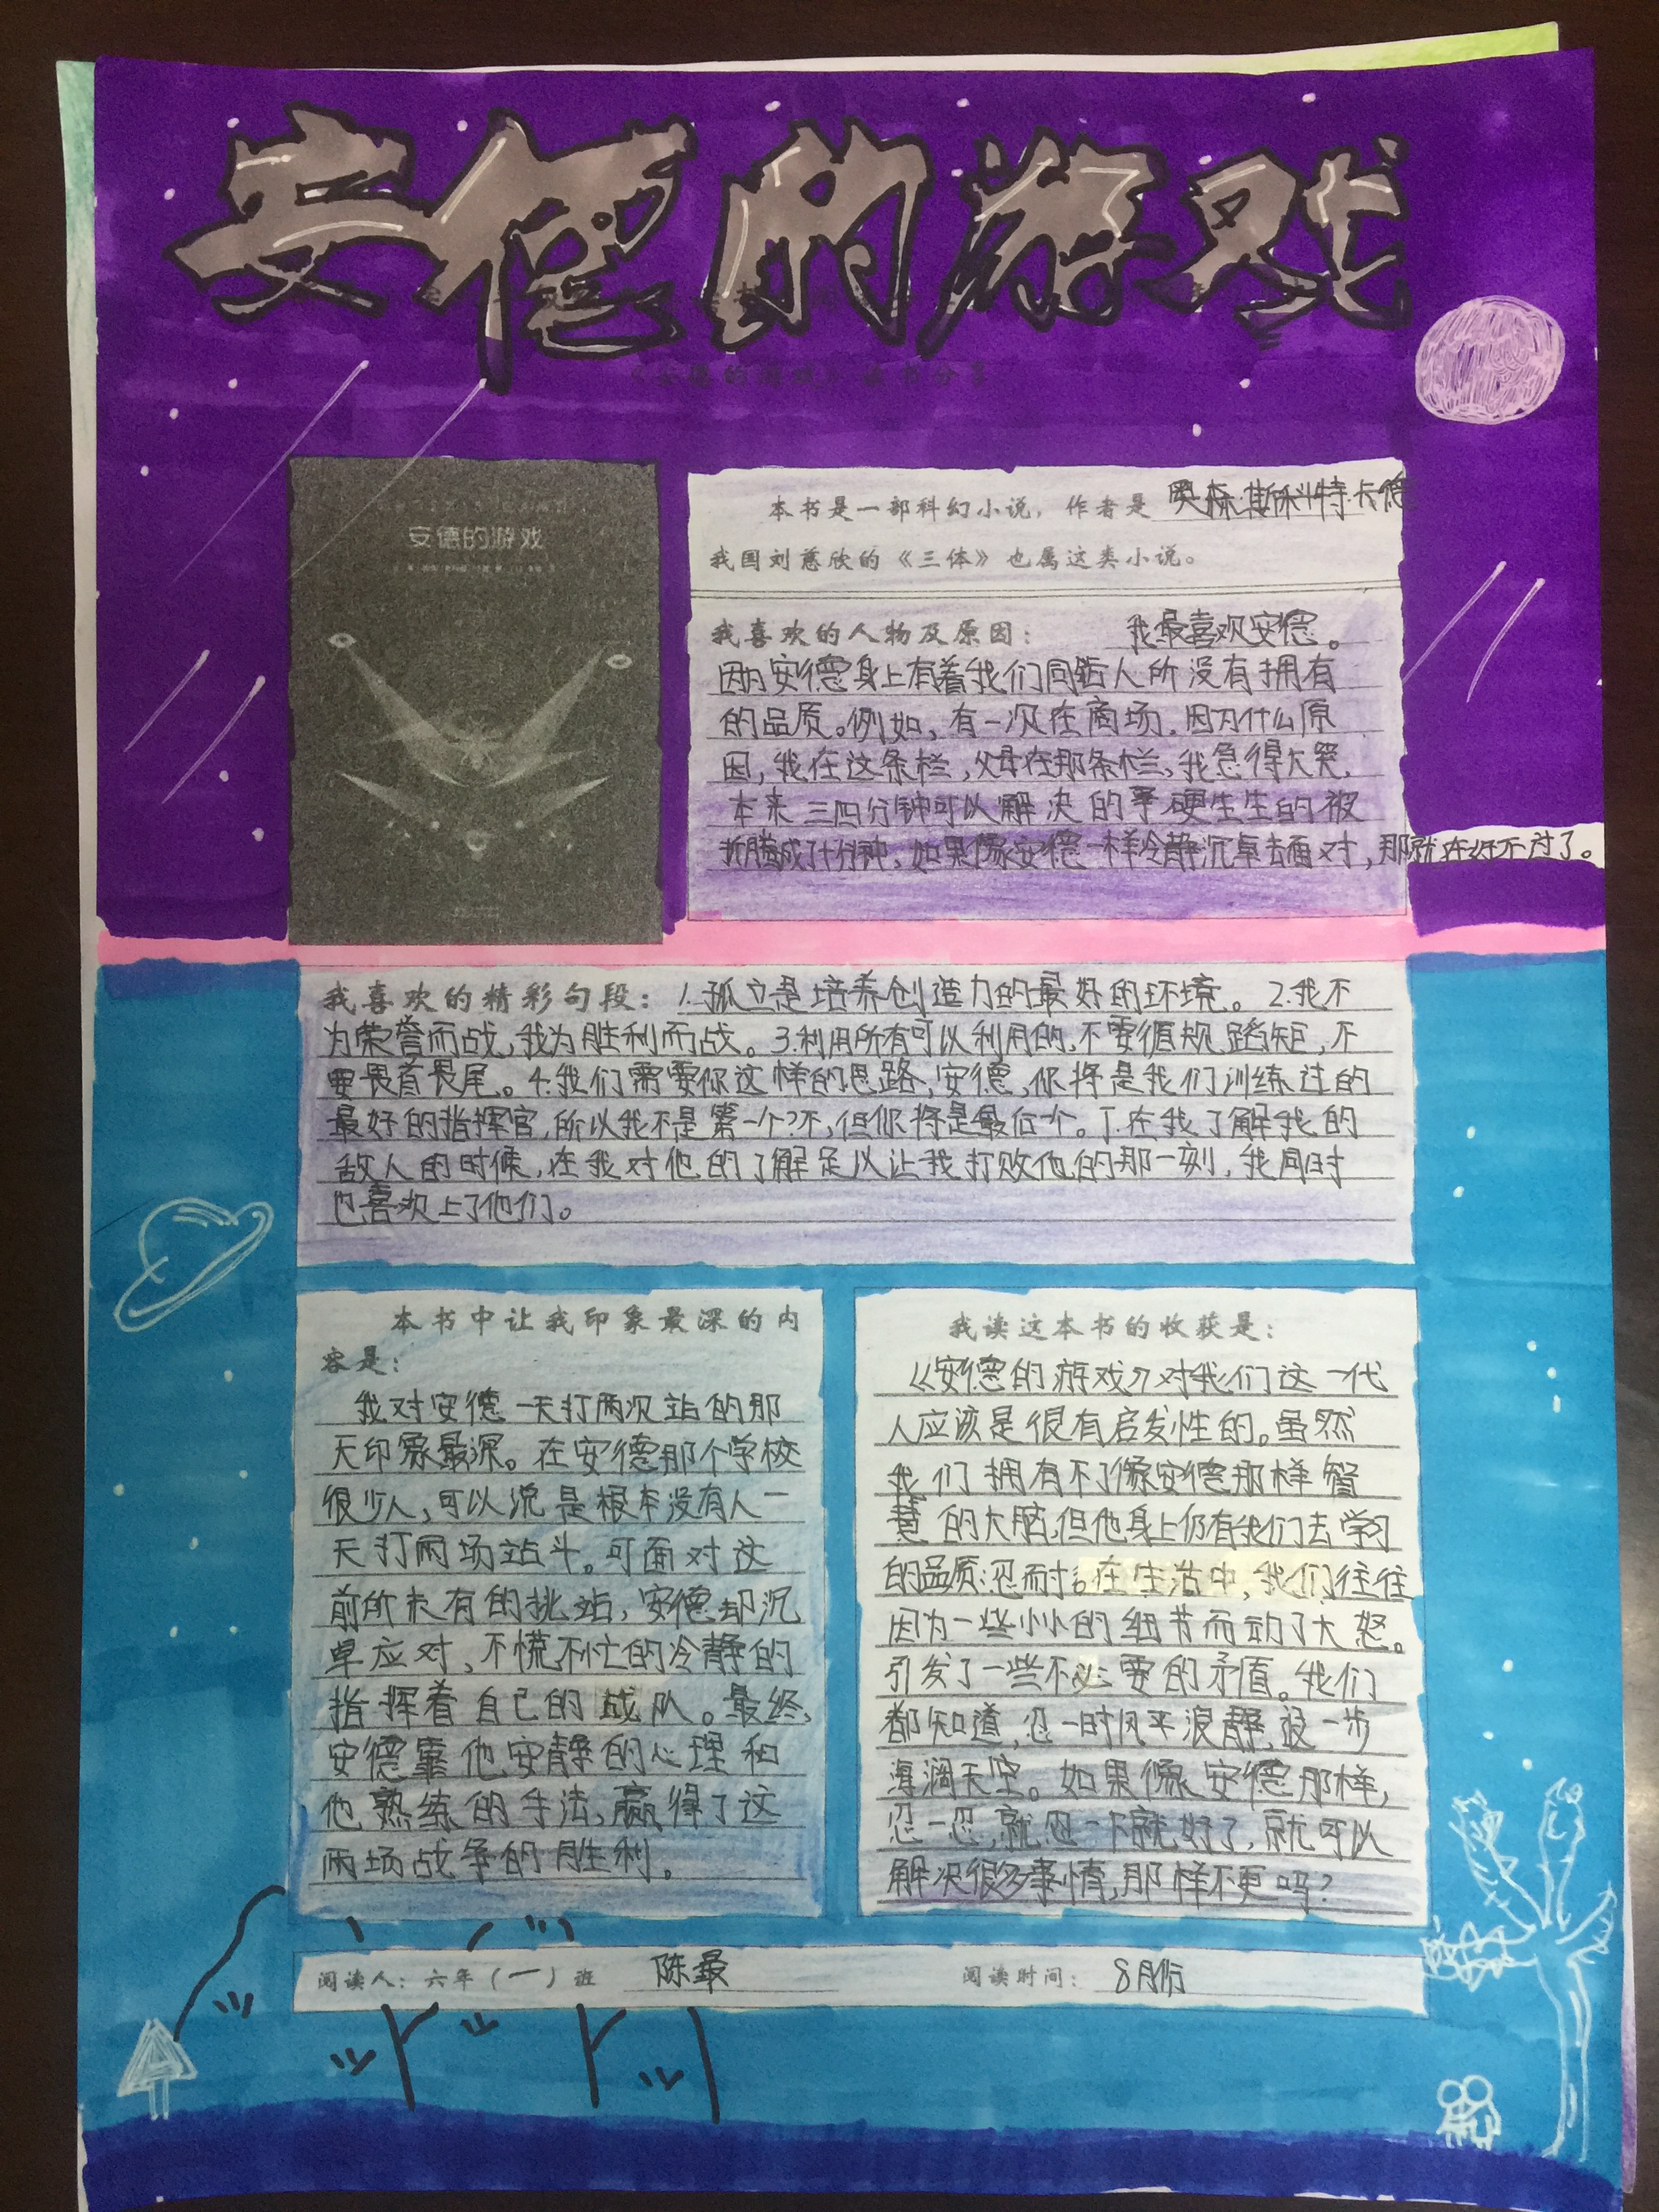 安德的游戏
《安德的游戏》读书分享
安德的游戏
本书是一部科幻小说，作者是 奥森·斯科特·卡德
我国刘慈欣的《三体》也属这类小说。
我喜欢的人物及原因： 我最喜欢安德。
因为安德身上有着我们同龄人所没有拥有
的品质。例如，有一次在商场，因为什么原
因，我在这条栏，父母在那条栏，我急得大哭，
本来三四分钟可以解决的事硬生生的被
折腾成了十分钟，如果像安德一样冷静沉卓去面对，那就在好不过了。
我喜欢的精彩句段：1.孤立是培养创造力的最好的环境。2.我不
为荣誉而战，我为胜利而战。3.利用所有可以利用的，不要循规蹈矩，不
要畏首畏尾。4.我们需要你这样的思路，安德，你将是我们训练过的
最好的指挥官，所以我不是第一个？不，但你将是最后个。5.在我了解我的
敌人的时候，在我对他的了解足以让我打败他的那一刻，我同时
也喜欢上了他们。
本书中让我印象最深的内
容是：
我对安德一天打两次站的那
天印象最深。在安德那个学校
很少人，可以说是根本没有人一
天打两场站斗。可面对这
前所未有的挑站，安德却沉
卓应对，不慌不忙的冷静的
指挥着自己的战队。最终，
安德靠他安静的心理和
他熟练的手法，赢得了这
两场战争的胜利。
我读这本书的收获是：
《安德的游戏》对我们这一代
人应该是很有启发性的。虽然
我们拥有不了像安德那样智
慧的大脑，但他身上仍有我们去学习
的品质：忍耐。在生活中，我们往往
因为一些小小的细节而动了大怒。
引发了一些不必要的矛盾。我们
都知道，忍一时风平浪静，退一步
海阔天空。如果像安德那样，
忍一忍，就忍一下就好了，就可以
解决很多事情，那样不更吗？
阅读人：六年（一）班 陈最 阅读时间：8月份